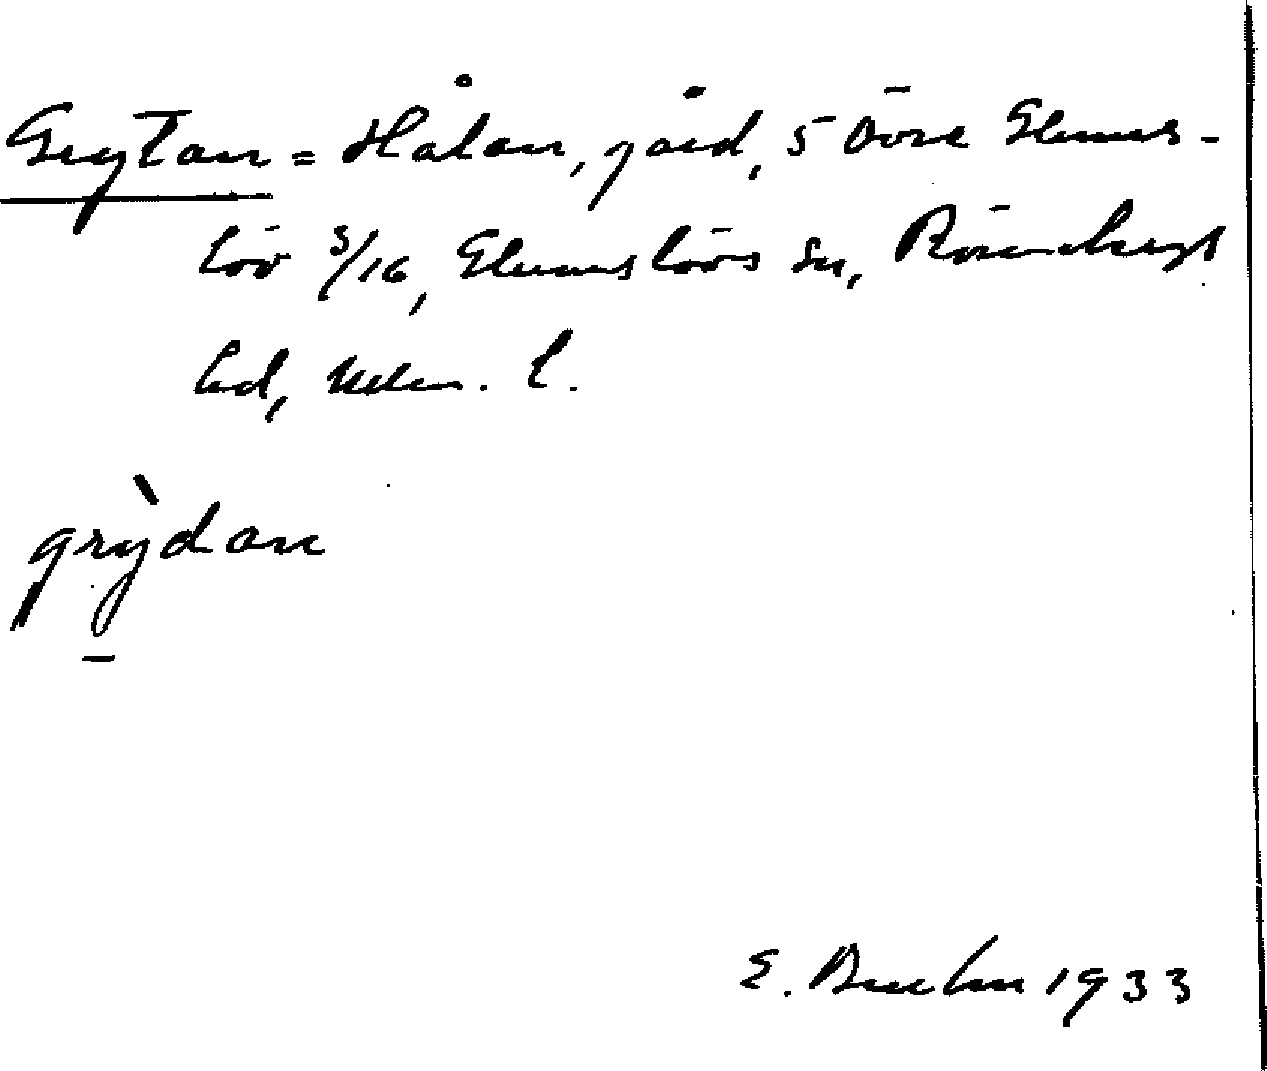 Grytan = Hålan, gård, 5 Övre Glums-
löv 3/16, Glumslövs sn, Rönnebergs
hd, Malm. l.
grỳdan
E. Bruhn 1933